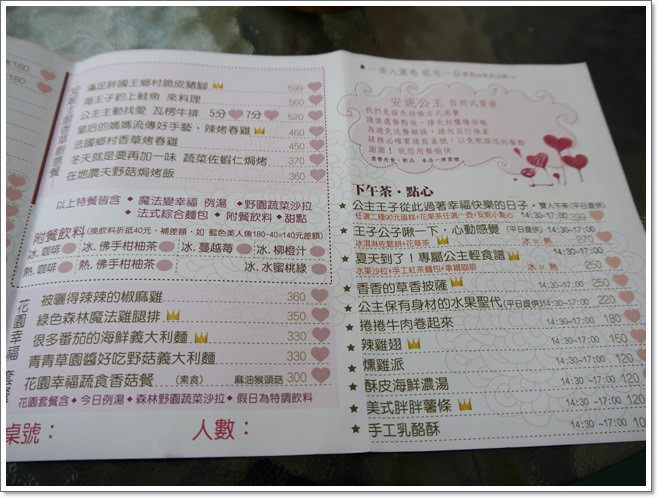 滿足胖國王鄉村脆皮豬腳 599
海王子釣上鮭魚 來料理 520
公主主動找愛 瓦楞牛排 5分 7分 560
皇后的媽媽流傳好手藝、辣烤春雞 460
法國鄉村香草烤春雞 450
冬天就是要再加一味 蔬菜佐蝦仁焗烤 370
在地農夫野菇焗烤飯 360
以上特餐皆含 魔法變幸福 例湯 野園蔬菜沙拉
法式綜合麵包 附餐飲料 甜點
附餐飲料 (換飲料折抵40元，補差額，如 藍色美人魚180-40=140元差額)
冰.咖啡 冰.佛手柑柚茶 冰.蔓越莓 冰.柳橙汁
熱.咖啡 熱.佛手柑柚茶 冰.水蜜桃綠
花園幸福 套餐
被曬得辣辣的椒麻雞 360
綠色森林魔法雞腿排 350
很多番茄的海鮮義大利麵 330
青青草園醬好吃野菇義大利麵 330
花園幸福蔬食香菇餐 (素食) 麻油猴頭菇 300
花園套餐含 今日例湯 森林野園蔬菜沙拉 假日為特調飲料
桌號： 人數：
安妮公主 自助式當家
下午茶‧點心
公主王子從此過著幸福快樂的日子，雙人午茶(平日提供)
任選二種90元蛋糕+花果茶任選一壺+安妮小點心 14:30~17:00 399
王子公子啾一下，心動感覺 (平日提供) 14:30~17:00
冰淇淋佐鬆餅+花草茶 冰 熱 275
夏天到了！專屬公主輕食譜
水果沙拉+手工紅茶麵包+拿鐵咖啡 冰 熱 250
香香的草香披薩 250
公主保有身材的水果聖代(平日提供) 14:30~17:00 220
捲捲牛肉卷起來 14:30~17:00 180
辣雞翅 14:30~17:00 150
燻雞派 14:30~17:00 120
酥皮海鮮濃湯 14:30~17:00 150
美式胖胖薯條 14:30~17:00 120
手工乳酪酥 14:30~17:00